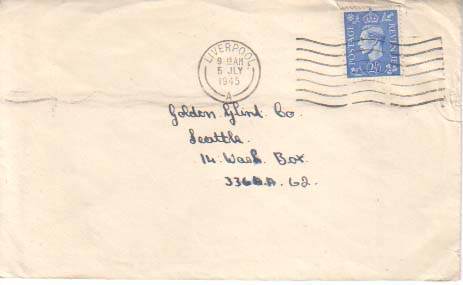 LIVERPOOL
9 AM
5 JLY
1945
A
POSTAGE REVENUE
2½ᴰ
Golden Glint Co
Seattle.
14 Wash. Box.
G2.